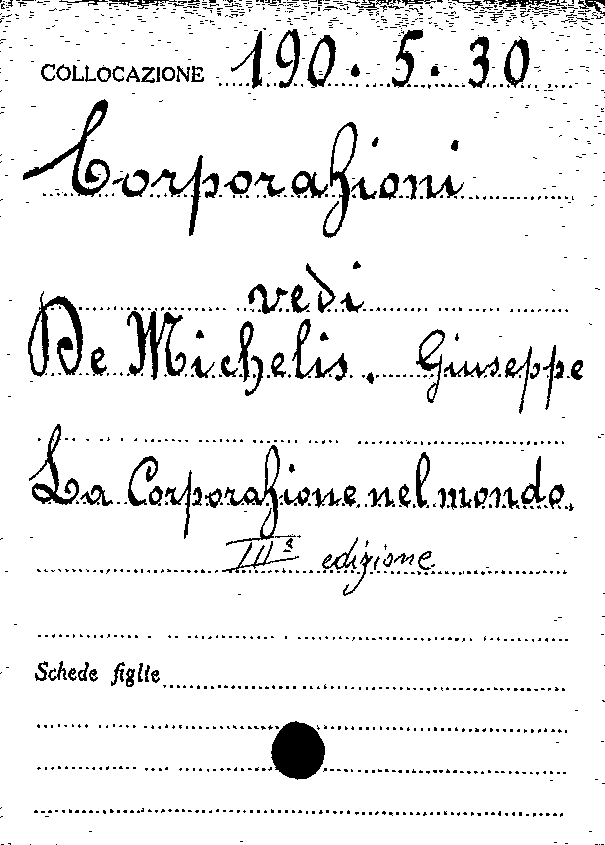 COLLOCAZIONE 190. 5. 30
Corporazioni
vedi
De Michelis. Giuseppe
La Corporazione nel mondo.
IIIª edizione
Schede figlie